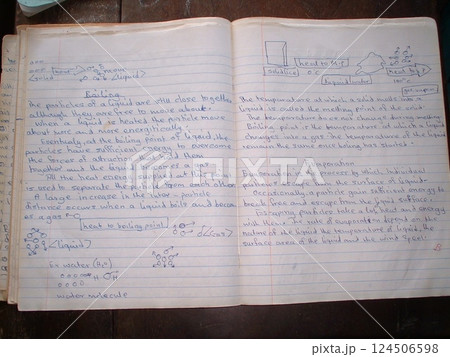 <solid>
<liquid>
Boiling
The particles of a liquid are still close together
although they are free to move about.
When a liquid is heated the particle move
about more and more energitically.
Eventually, at the boiling point of liquid, the
particles have sufficient energy to overcome
the forces of attraction hold them
together and the liquid become a gas.
All the heat energy supplied at this
is used to separate the from each other
A large increase in the inter-particle
distance occurs when a liquid boils and become
a gas
heat to boiling point
<liquid>
<Gas>
Ex: water (H2O)
water molecule
heat to M.P
solid ice
0°C
liquid water
heat to
100°C
The temperature at which a solid melts into a
liquid is called the melting point of the solid.
The temperature does not change during melting.
Boiling point is the temperature at which a liquid
changes into a gas. The temperature of the liquid
remain the same once boiling has started.
Evaporation
Evaporation is the process by which individual
particles escape from the surface of liquid.
Occurs when a particle has sufficient energy to
break free and escape from the liquid surface.
Escaping particles take a lot of heat energy
with them. The rate of evaporation depend on the
nature of the liquid the temperature of liquid, the
surface area of the liquid and the wind speed.
124506598